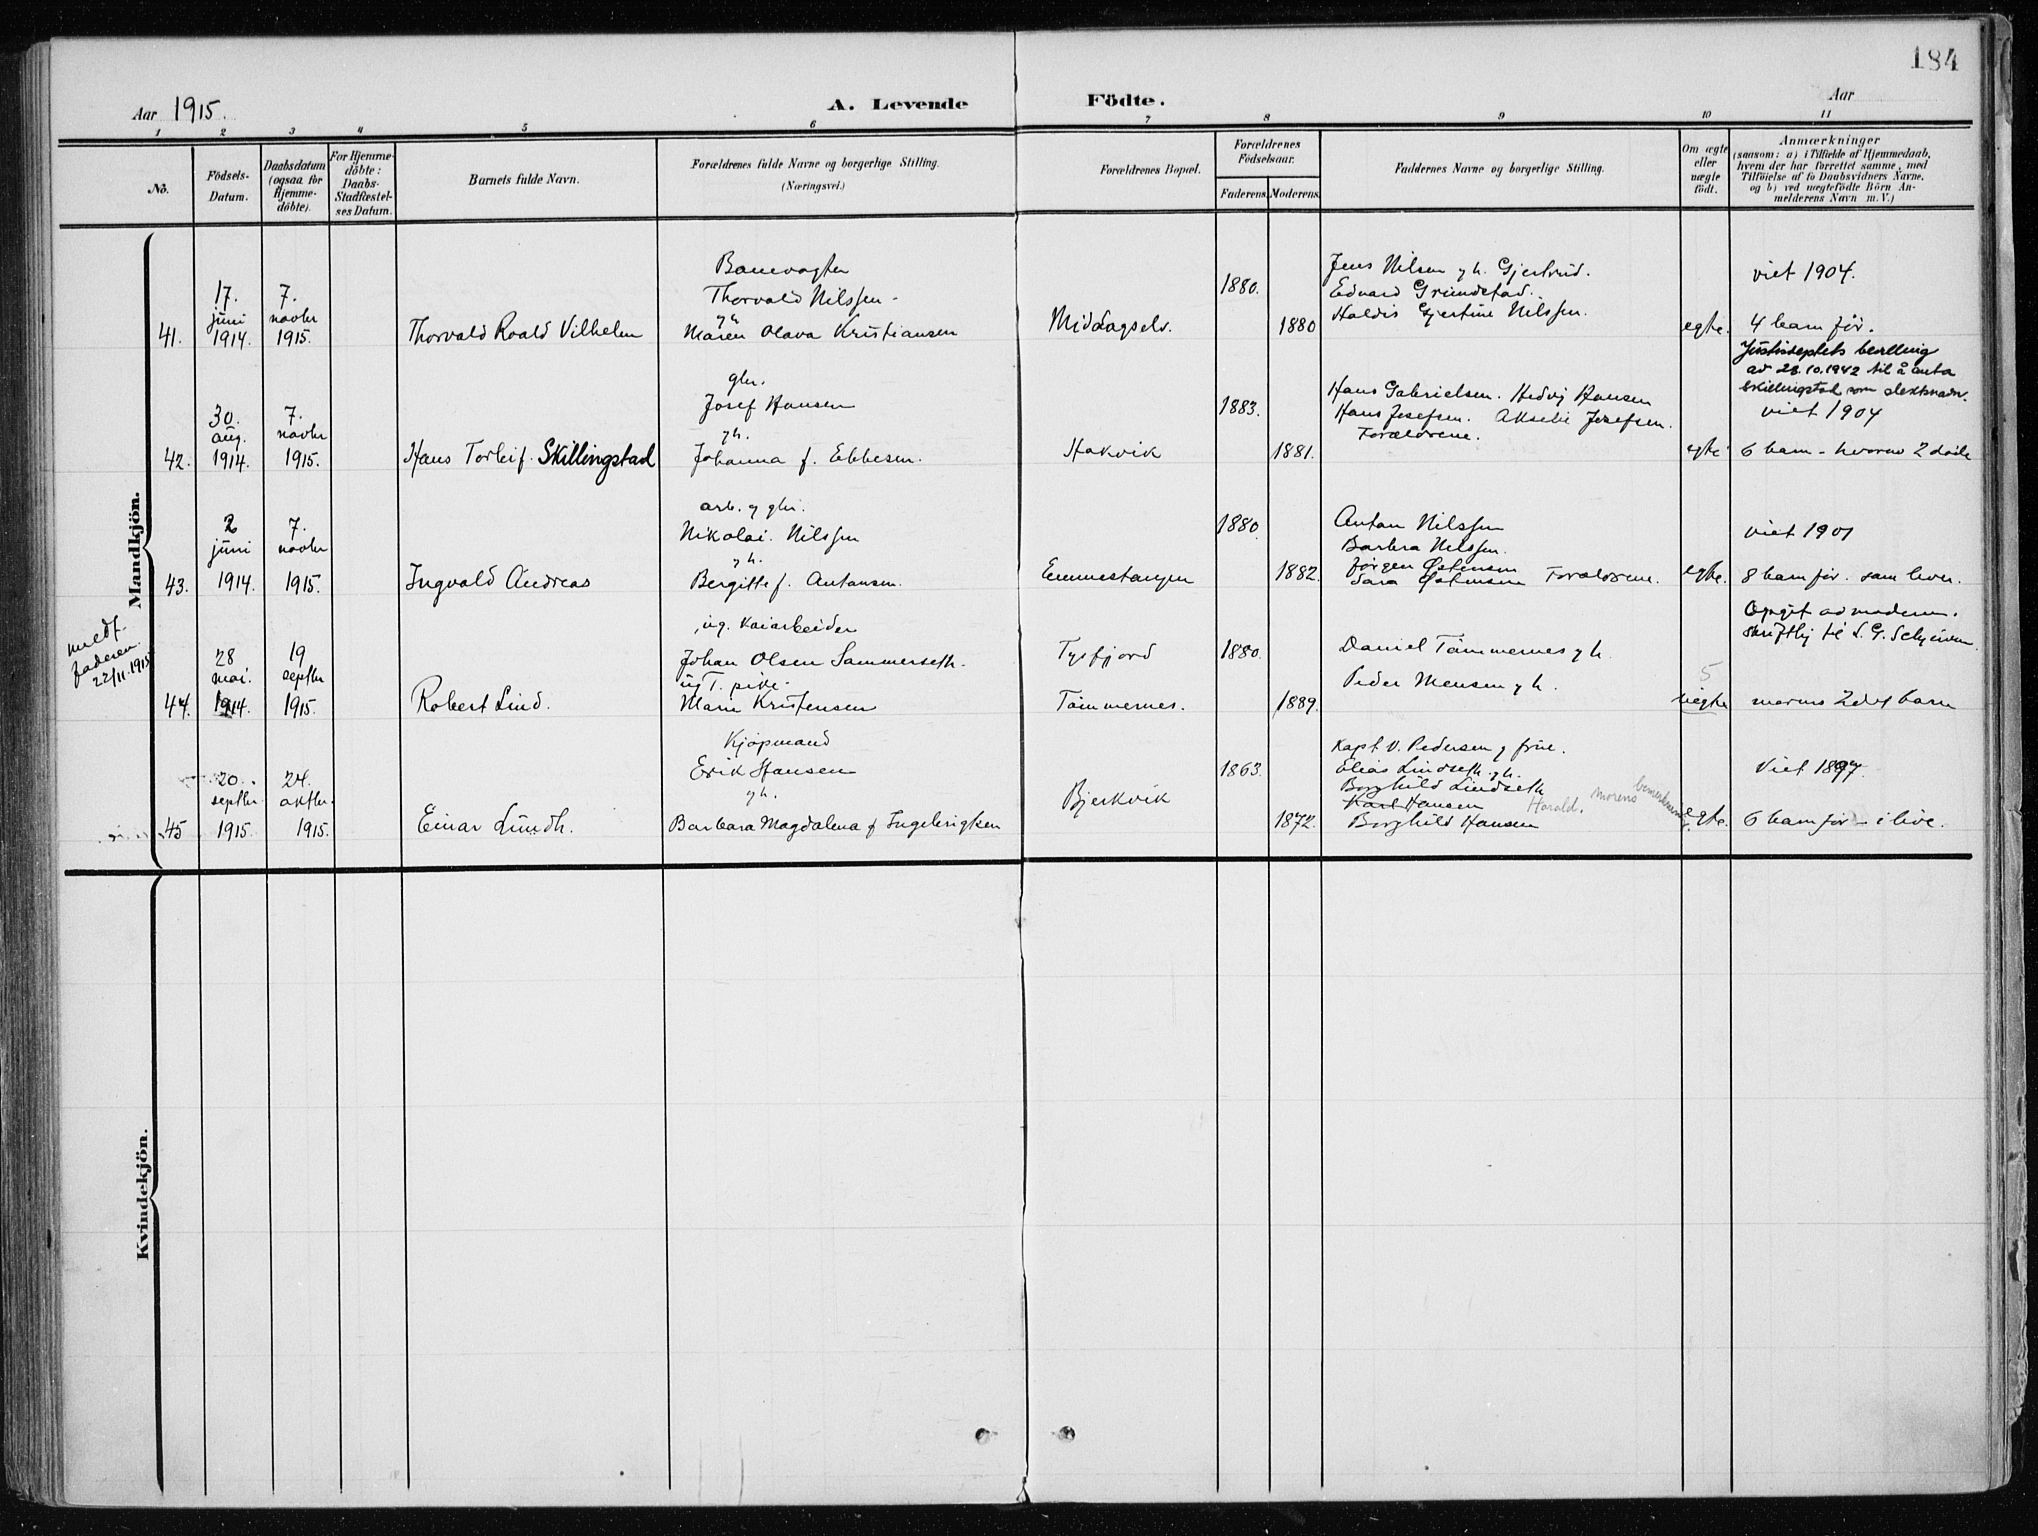 184
Aar 1915.
A. Levende Födte.
Aar
1 2 3 4 5 6 7 8 9 10 11
No.
Födsels-Datum.
Daabsdatum (ogsaa for Hjemmedöbte).
For Hjemmedöbte: Daabs-Stadfæstelses Datum.
Barnets fulde Navn.
Forældrenes fulde Navne og borgerlige Stilling.
(Næringsvei.)
Forældrenes Bopæl.
Forældrenes Födselsaar.
Faderens. Moderens.
Faddernes Navne og borgerlige Stilling.
Om ægte eller uægte födt.
Anmærkninger
(saasom: a) i Tilfælde af Hjemmedaab,
hvem der har forrettet samme, med
Tilföielse af to Daabsvidners Navne,
og b) ved uægtefödte Börn An-
melderens Navn m. V.)
Mandkjön.
41.
17. juni 1914.
7. novbr 1915.
Thorvald Roald Vilhelm
Banevogter
Thorvald Nilssen
gh
Maren Olava Kristiansen
Middagselv.
1880.
1880
Jens Nilsen gh. Gjertrud.
Edvard Grundstad.
Haldis Gjertine Nilssen.
egte.
viet 1904.
4 barn før.
42.
30. aug. 1914.
7. novbr 1915.
Hans Torleif Skillingstad
gbr.
Josef Hansen
gh.
Johanna f. Ebbesen.
Hakvik
1883.
1881.
Hans Gabrielsen. Hedvig Hansen
Hans Josefsen. Akselie Josefsen.
Forældrene.
egte
Justisdeptets bevilling
av 28.10.1942 til å anta
Skillingstad som slektsnavn.
viet 1904
6 barn - hvorav 2 døde
43.
2 juni 1914.
7. novbr 1915.
Ingvald Andreas
arb. og gbr.
Nikolai Nilssen
gh.
Bergitte f. Antonsen.
Emmestangen
1880
1882.
Anton Nilssen
Barbra Nilssen.
Jørgen Østensen
Sara Østensen Forældrene.
egte.
viet 1901
8 barn før. som lever.
medf.
faderen
22/11.1915
44.
28 mai. 1914.
19 septbr 1915.
Robert Lind.
ug. Kaiarbeider
Johan Olsen Sammerseth.
ug. T. pike
Marie Kristensen
Tysfjord
Tømmernes.
1880.
1889.
Daniel Tømmernes gh.
Peder Mensen gh.
5
uegte
Opgit av moderen.
skriftlig til S. G.
morens 2det barn
45
20. septbr. 1915.
24. oktbr. 1915.
Einar Lundh.
Kjøpmand
Erik Hansen
gh.
Barbara Magdalena f Ingebrigtsen
Bjerkvik
1863.
1872.
Kapt V. Pedersen g frue.
Elias Lindseth gh.
Borghild Lindseth
Karl Hansen
Harald. morens bemerkning.
Borghild Hansen
egte.
Viet 1897.
6 barn før - i live.
Kvindekjön.